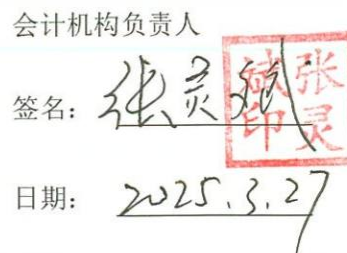 会计机构负责人
签名：张灵斌
张灵斌印
日期：2025.3.27